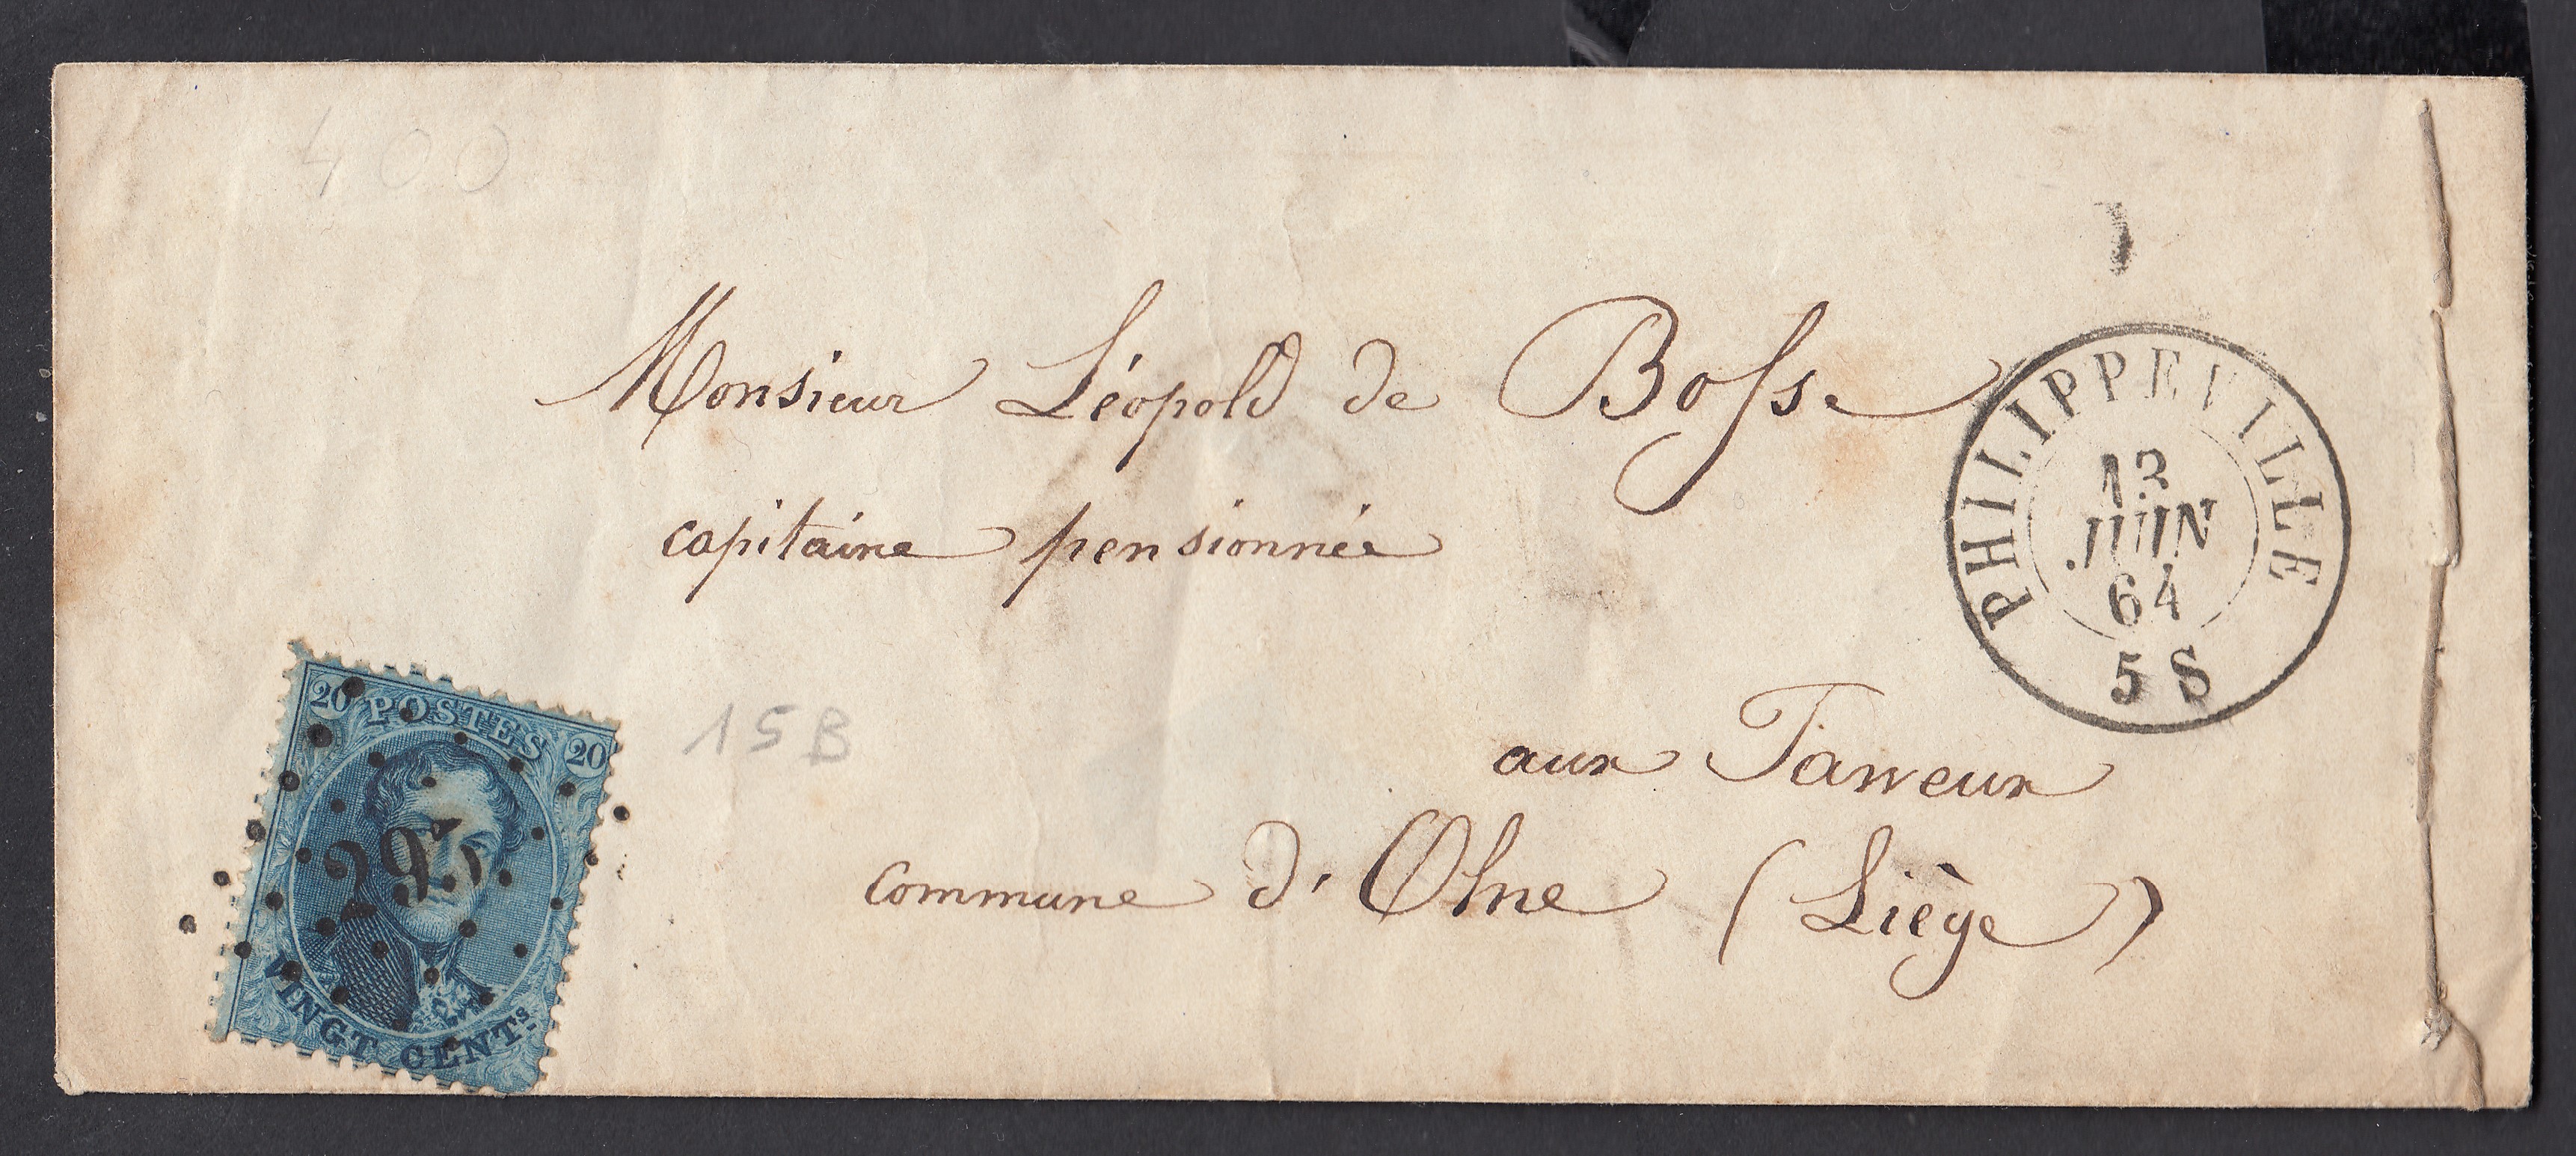 400
Monsieur Léopold de Bosse
capitaine pensionnée
PHILIPPEVILLE
13
JUIN
64
5 S
15B
20 POSTES 20
VINGT CENTS
aux Taweux
commune d'Olne (Liège)